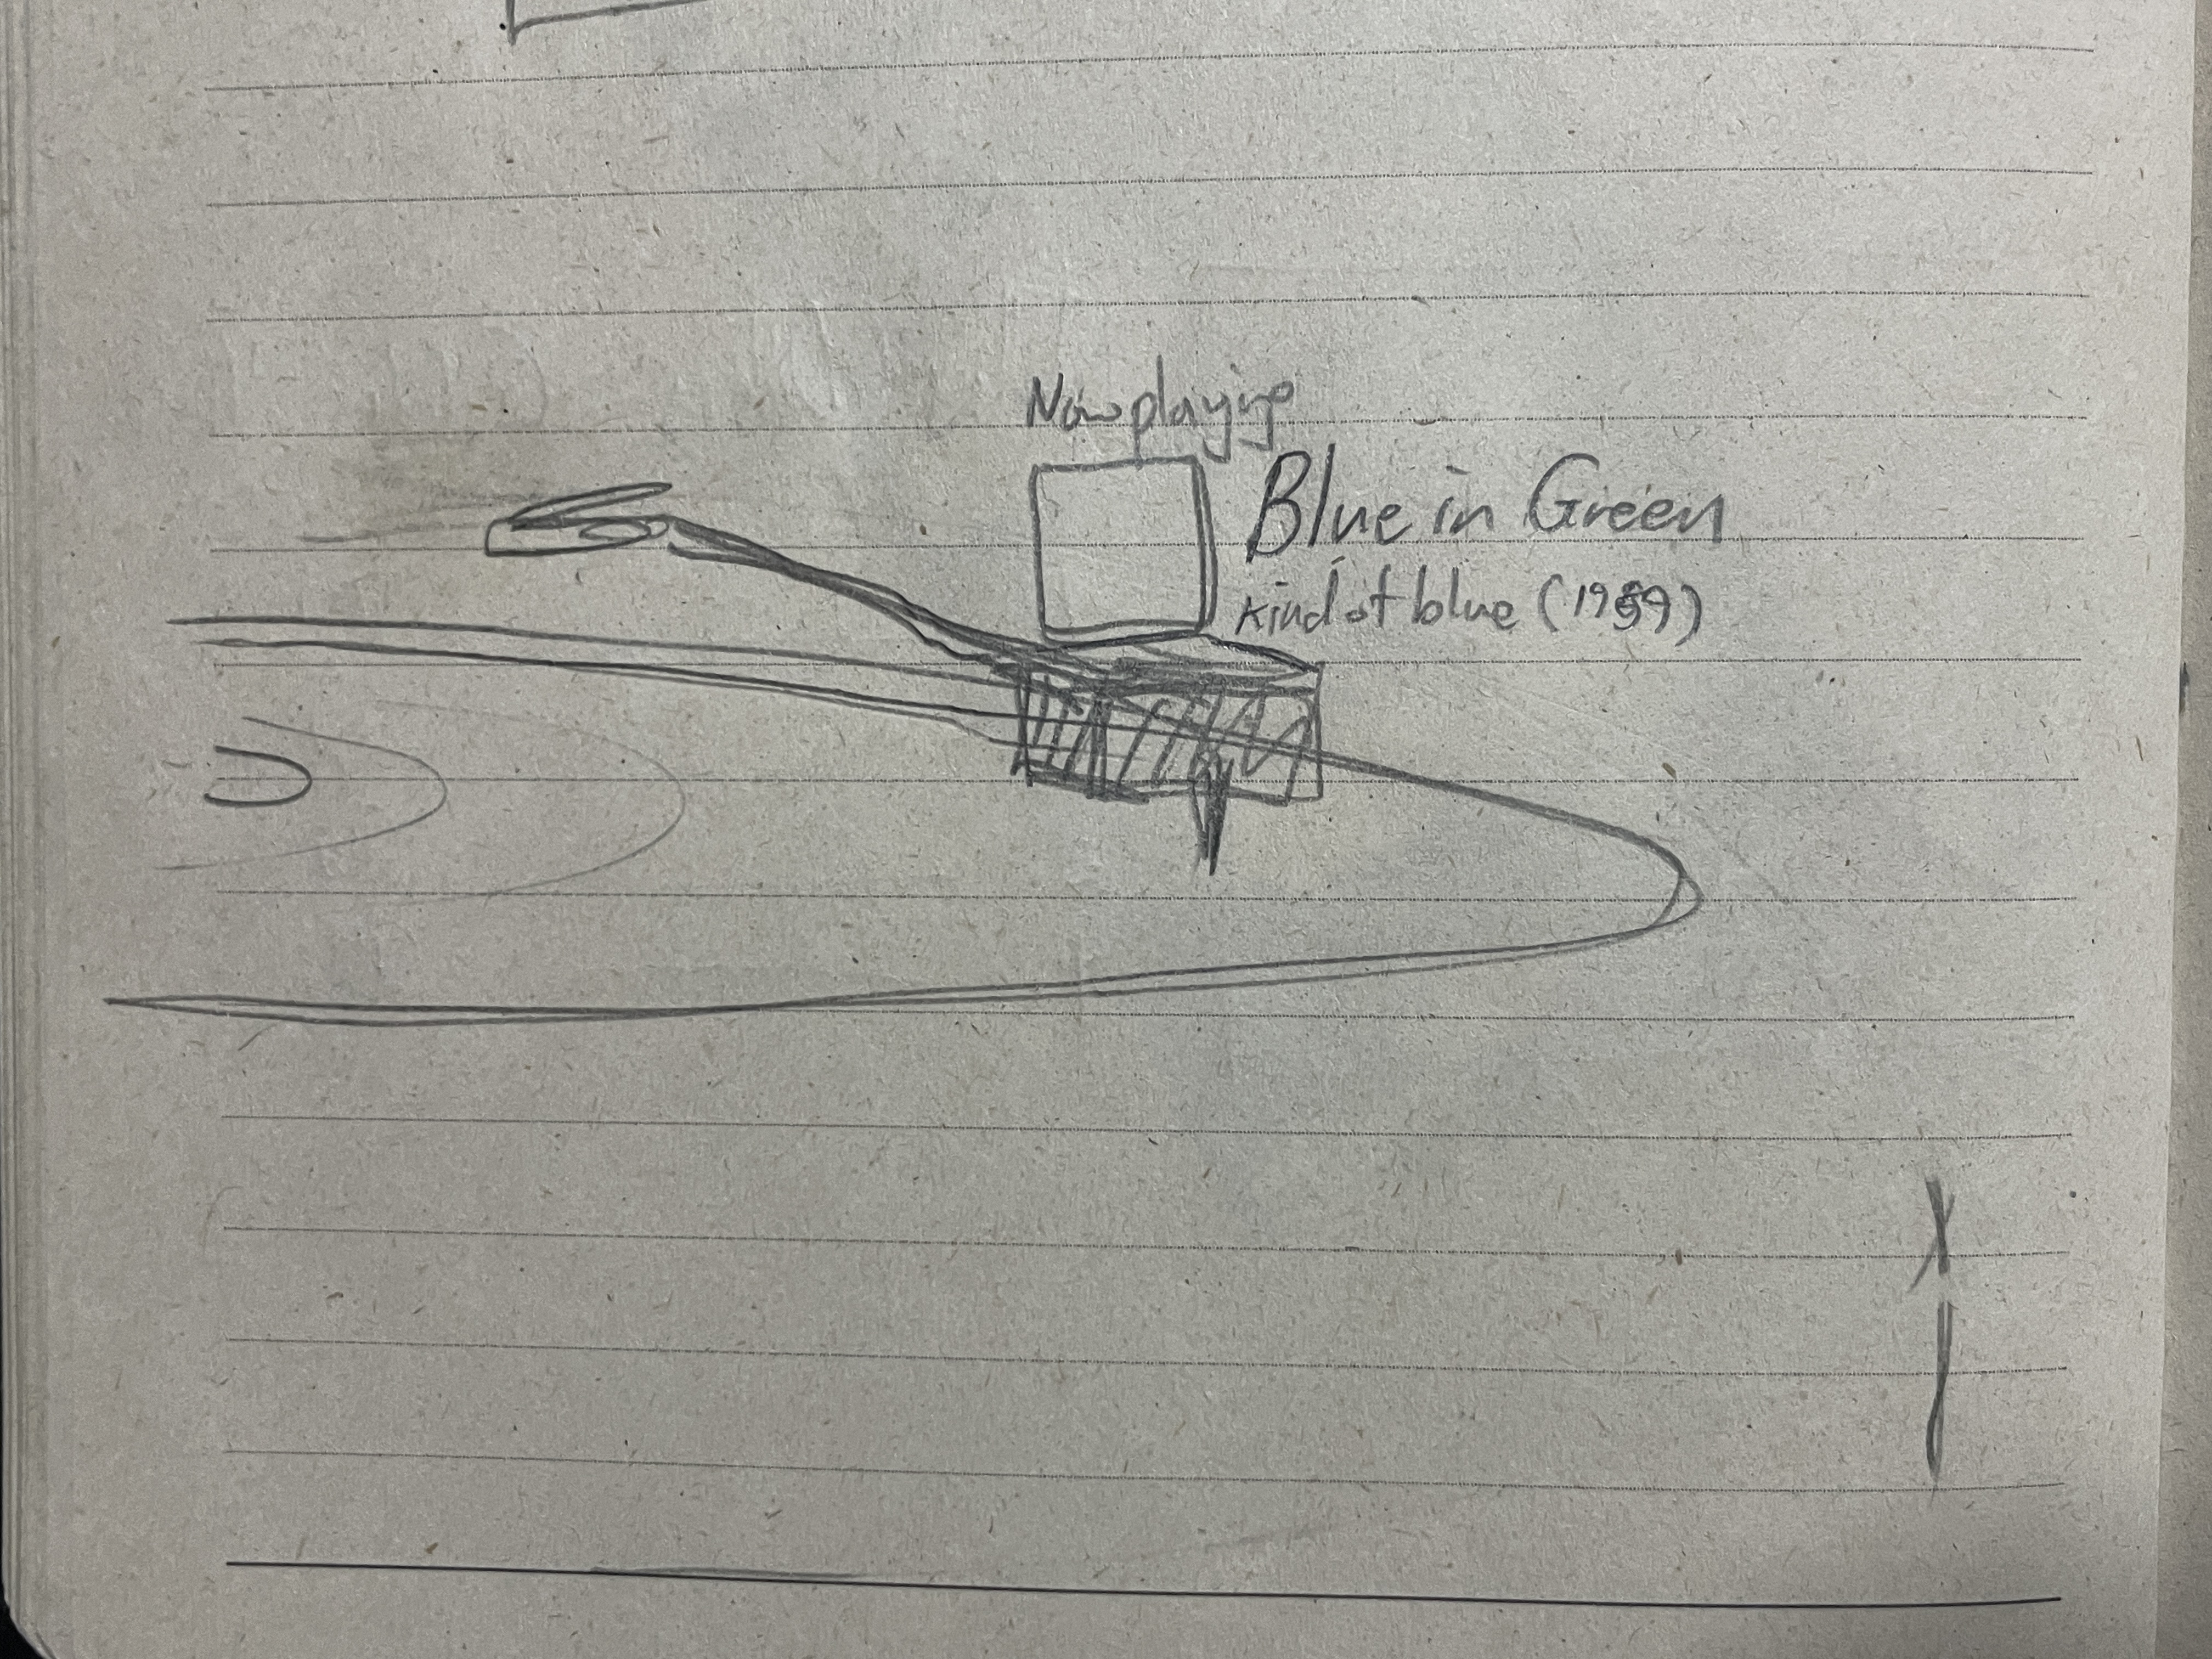 Now playing
Blue in Green
Kind of blue (1959)